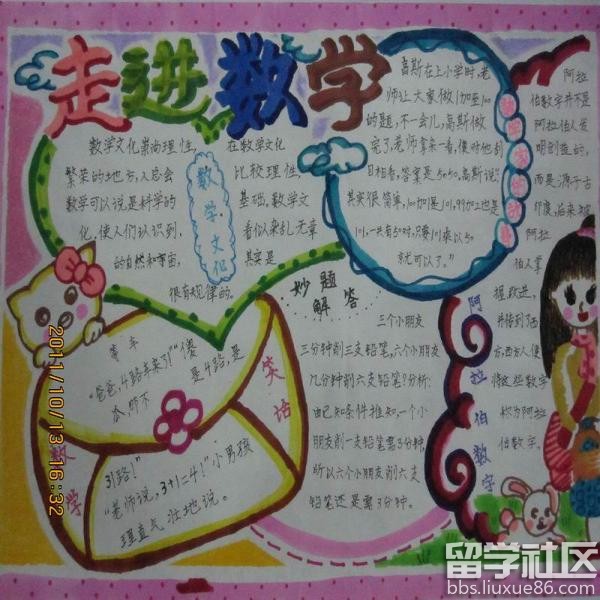 走进数学
数学文化崇尚理性,
繁荣的地方,人总会
数学可以说是科学的
化,使人们认识到,
的自然和宇宙,
很有规律的。
数学文化
在数学文化
比较理性,
基础,数学文
看似杂乱无章
其实是
高斯在上小学时,老
师让大家做1加至100
的题,不一会儿,高斯做
完了,老师拿来一看,便对他刮
目相看,答案是5050,高斯说:"
其实很简单,100加是101,99加上也是
101,一共有50对,只要101乘以50
就可以了。"
阿拉
伯数字并不是
阿拉伯人发
明创造的,
而是源于古
印度,后来被
阿拉
伯人掌
握、改进,
并传到了西
方,西方人便
将这些数字
称为阿拉
伯数字。
阿拉伯数字
妙题
解答
三个小朋友
三分钟削三支铅笔,六个小朋友
几分钟削六支铅笔?分析:
由已知条件推知,一个小
朋友削一支铅笔需3分钟,
所以六个小朋友削六支
铅笔还是需3分钟。
数学
笑话
等车
"爸爸,4路车来了!""傻
是4路,是
31路!"
"老师说,3+1=4!"小男孩
理直气壮地说。
2011/10/13 16:32
留学社区
bbs.liuxue86.com